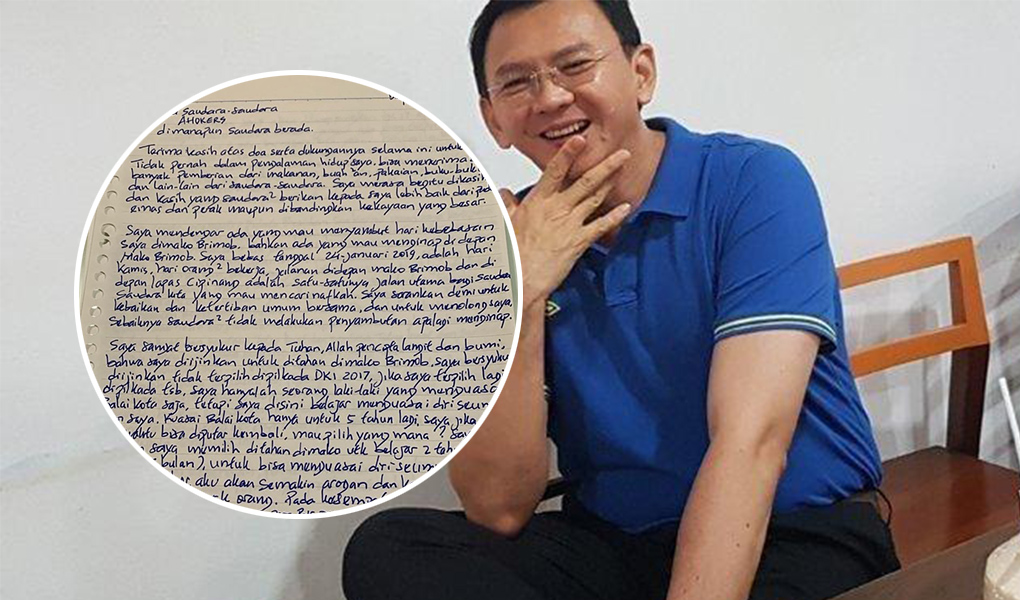 Saudara-saudara
AHOKERS
dimanapun saudara berada.
Tarima kasih atas doa serta dukungannya selama ini untuk
Tidak pernah dalam pengalaman hidup saya, bisa menerima
banyak pemberian dari makanan, buah'an, pakaian, buku-buku
dan lain-lain dari saudara-saudara. Saya merasa begitu dikasihi
dan kasih yang saudara² berikan kepada saya lebih baik dari pada
emas dan perak maupun dibandingkan kekayaan yang besar.
Saya mendengar ada yang mau menyambut hari kebebasan
saya dimako Brimob. bahkan ada yang mau menginap didepan
Mako Brimob. Saya bebas tanggal 24-januari 2019, adalah hari
Kamis, hari orang² bekerja, jalanan didepan mako Brimob dan di
depan lapas Cipinang adalah satu-satunya jalan utama bagi saudara
Saudara kita yang mau mencari nafkah. Saya sarankan demi untuk
kebaikan dan ketertiban umum bersama, dan untuk menolong saya,
sebaiknya saudara² tidak melakukan penyambutan apalagi menginap.
Saya sangat bersyukur kepada Tuhan, Allah pencipta langit dan bumi,
bahwa saya diijinkan untuk ditahan dimako Brimob. saya bersyuku
diijinkan tidak terpilih dipilkada DKI 2017. jika saya terpilih lagi
dipilkada tsb, saya hanyalah seorang laki-laki yang menguasa
Balaikota saja, tetapi saya disini belajar menguasai diri seum
saya. Kuasai Balaikota hanya untuk 5 tahun lagi, saya jika
waktu bisa diputar kembali, mau pilih yang mana? Say
saya memilih ditahan dimako utk belajar 2 tah
bulan), untuk bisa menguasai diri seum
aku akan semakin arogan dan
orang. Pada kesem